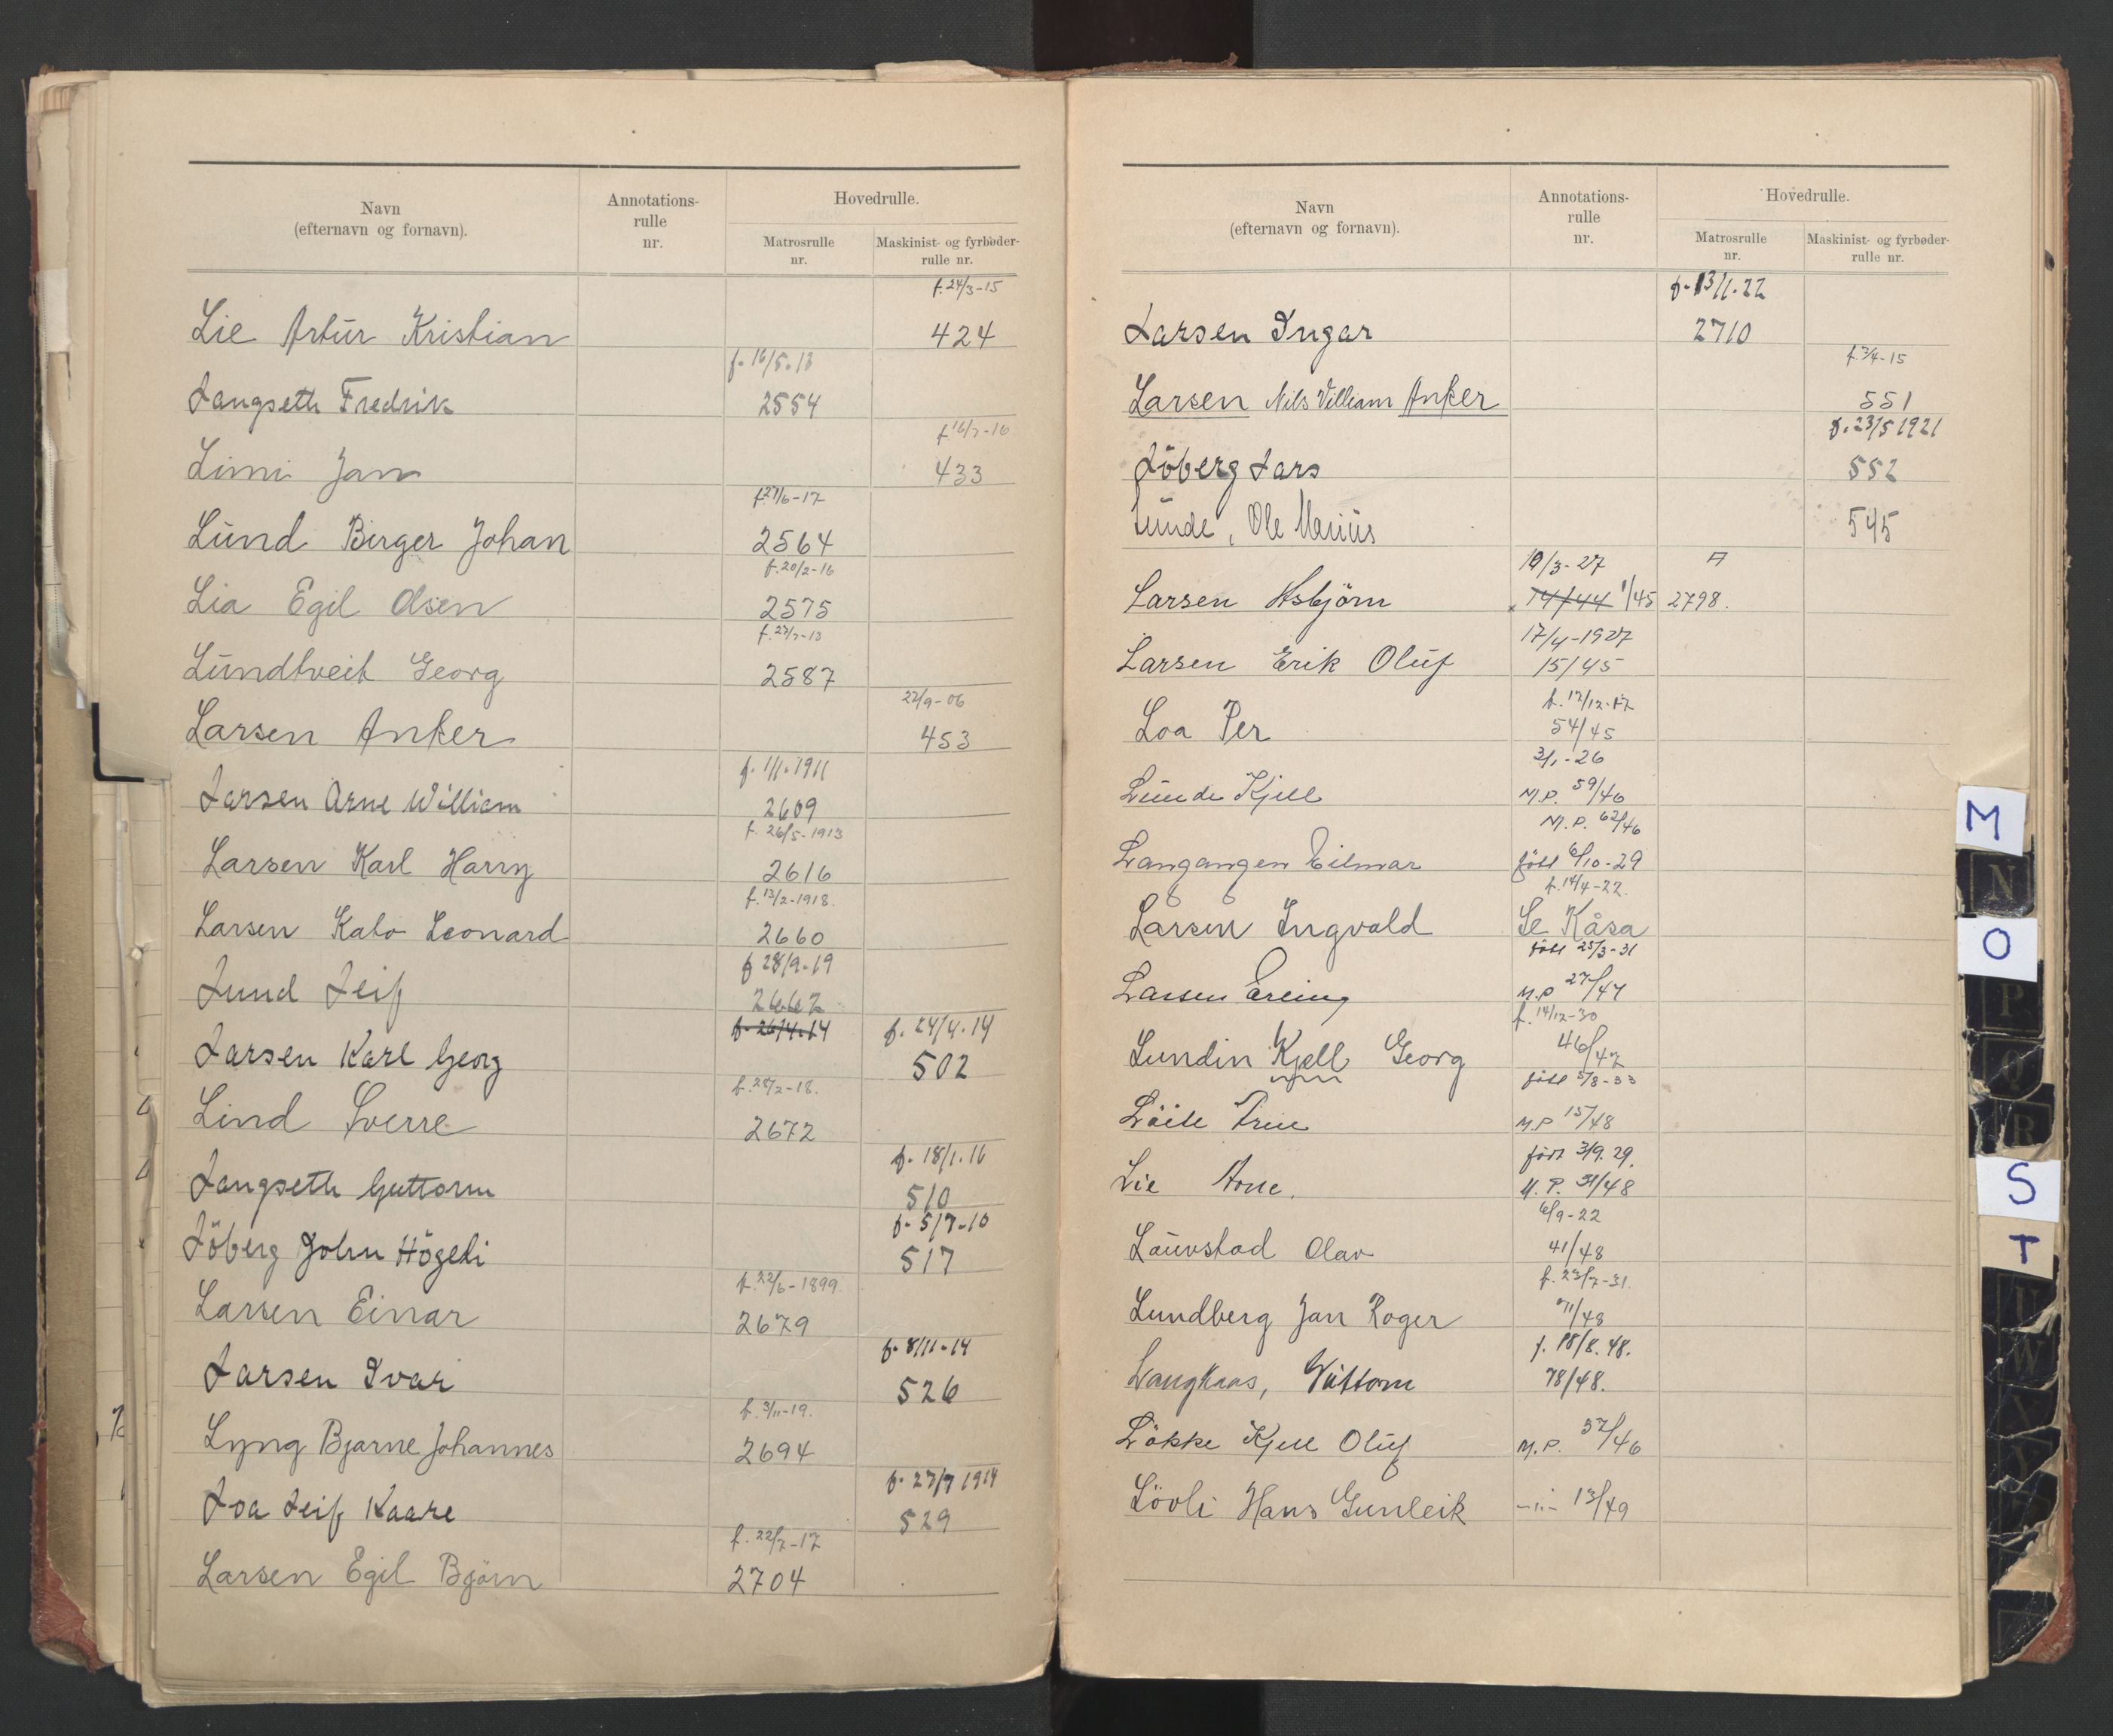 Navn
(efternavn og fornavn).
Annotations-
rulle
nr.
Hovedrulle.
Matrosrulle
nr.
Maskinist- og fyrbøder-
rulle nr.
f. 24/3-15
Lie Artur Kristian 424
f. 16/5-13
Langseth Fredrik 2554
f 16/7-16
Limi Jan 433
f 27/6-17
Lund Birger Johan 2564
f. 20/2-16
Lia Egil Olsen 2575
f. 27/7-13
Lundtveit Georg 2587
22/9-06
Larsen Anker 453
f. 1/1-1911
Larsen Arne William 2609
f. 26/5-1913
Larsen Karl Harry 2616
f. 13/2-1918.
Larsen Kato Leonard 2660
f 28/9-19
Lund Leif 2662
f. 26/4-14 f. 24/4-14
Larsen Karl Georg 502
f. 28/2-18.
Lind Sverre 2672
f. 18/1-16
Langseth Guttorm 510
f. 5/7-10
Löberg John Högeli 517
f. 22/6-1899
Larsen Einar 2679
f. 8/11-14
Larsen Ivar 526
f. 3/11-19.
Lyng Bjarne Johannes 2694
f. 27/7 1914
Loa Leif Kaare 529
f. 22/7-17
Larsen Egil Bjørn 2704
Navn
(efternavn og fornavn).
Annotations-
rulle
nr.
Hovedrulle.
Matrosrulle
nr.
Maskinist- og fyrbøder-
rulle nr.
f. 13/1-22
Larsen Ingar 2710
f. 3/4-15
Larsen Nils Villiam Anker 551
f. 23/5 1921
Löberg Lars 552
Lunde, Ole Marius 545
10/3-27
Larsen Asbjörn 74/44 1/45 2798.
17/4-1927
Larsen Erik Oluf 15/45
f. 12/12-17
Loa Per 54/45
3/1-26
Lunde Kjell M.P. 59/46
M.P. 62/46
Langangen Eilmar född 6/10-29
f. 14/4-22.
Larsen Ingvald Se Kåsa
född 25/3-31
Larsen Erling M.P 27/47
f. 14/12-30
Lundin Kjell Georg 46/47
född 5/8-33
M.P 15/48
född 3/9. 29.
Lie Arne. M.P. 31/48
6/9-22
Lauvstad Olav 41/48
f. 23/7-31.
Lundberg Jan Roger 71/48
f. 18/8. 48.
Langkaas, Guttorm 78/48.
Lökke Kjell Oluf M.P. 32/46
Lövli Hans Gunleik -"- 13/49
M
N
O
P
Q
R
S
T
U
W
Y